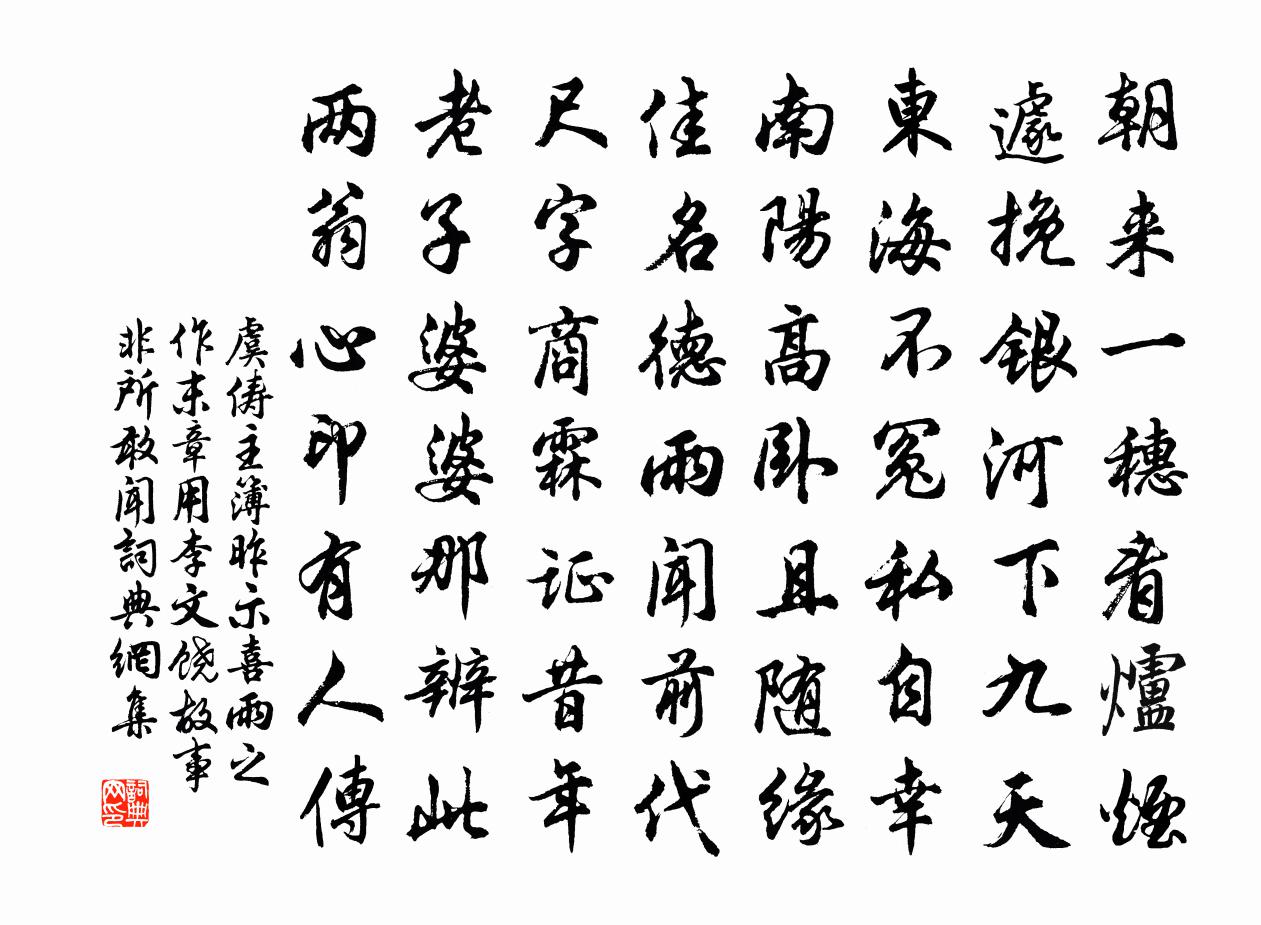 朝来一穗看爐煙
遽挽銀河下九天
東海不冤私自幸
南陽高卧且随緣
佳名德雨闻前代
尺字商霖证昔年
老子婆婆那辨此
两翁心印有人傳
虞俦主薄昨示喜雨之
作末章用李文饶故事
非所敢闻詞典網集
詞典
网印